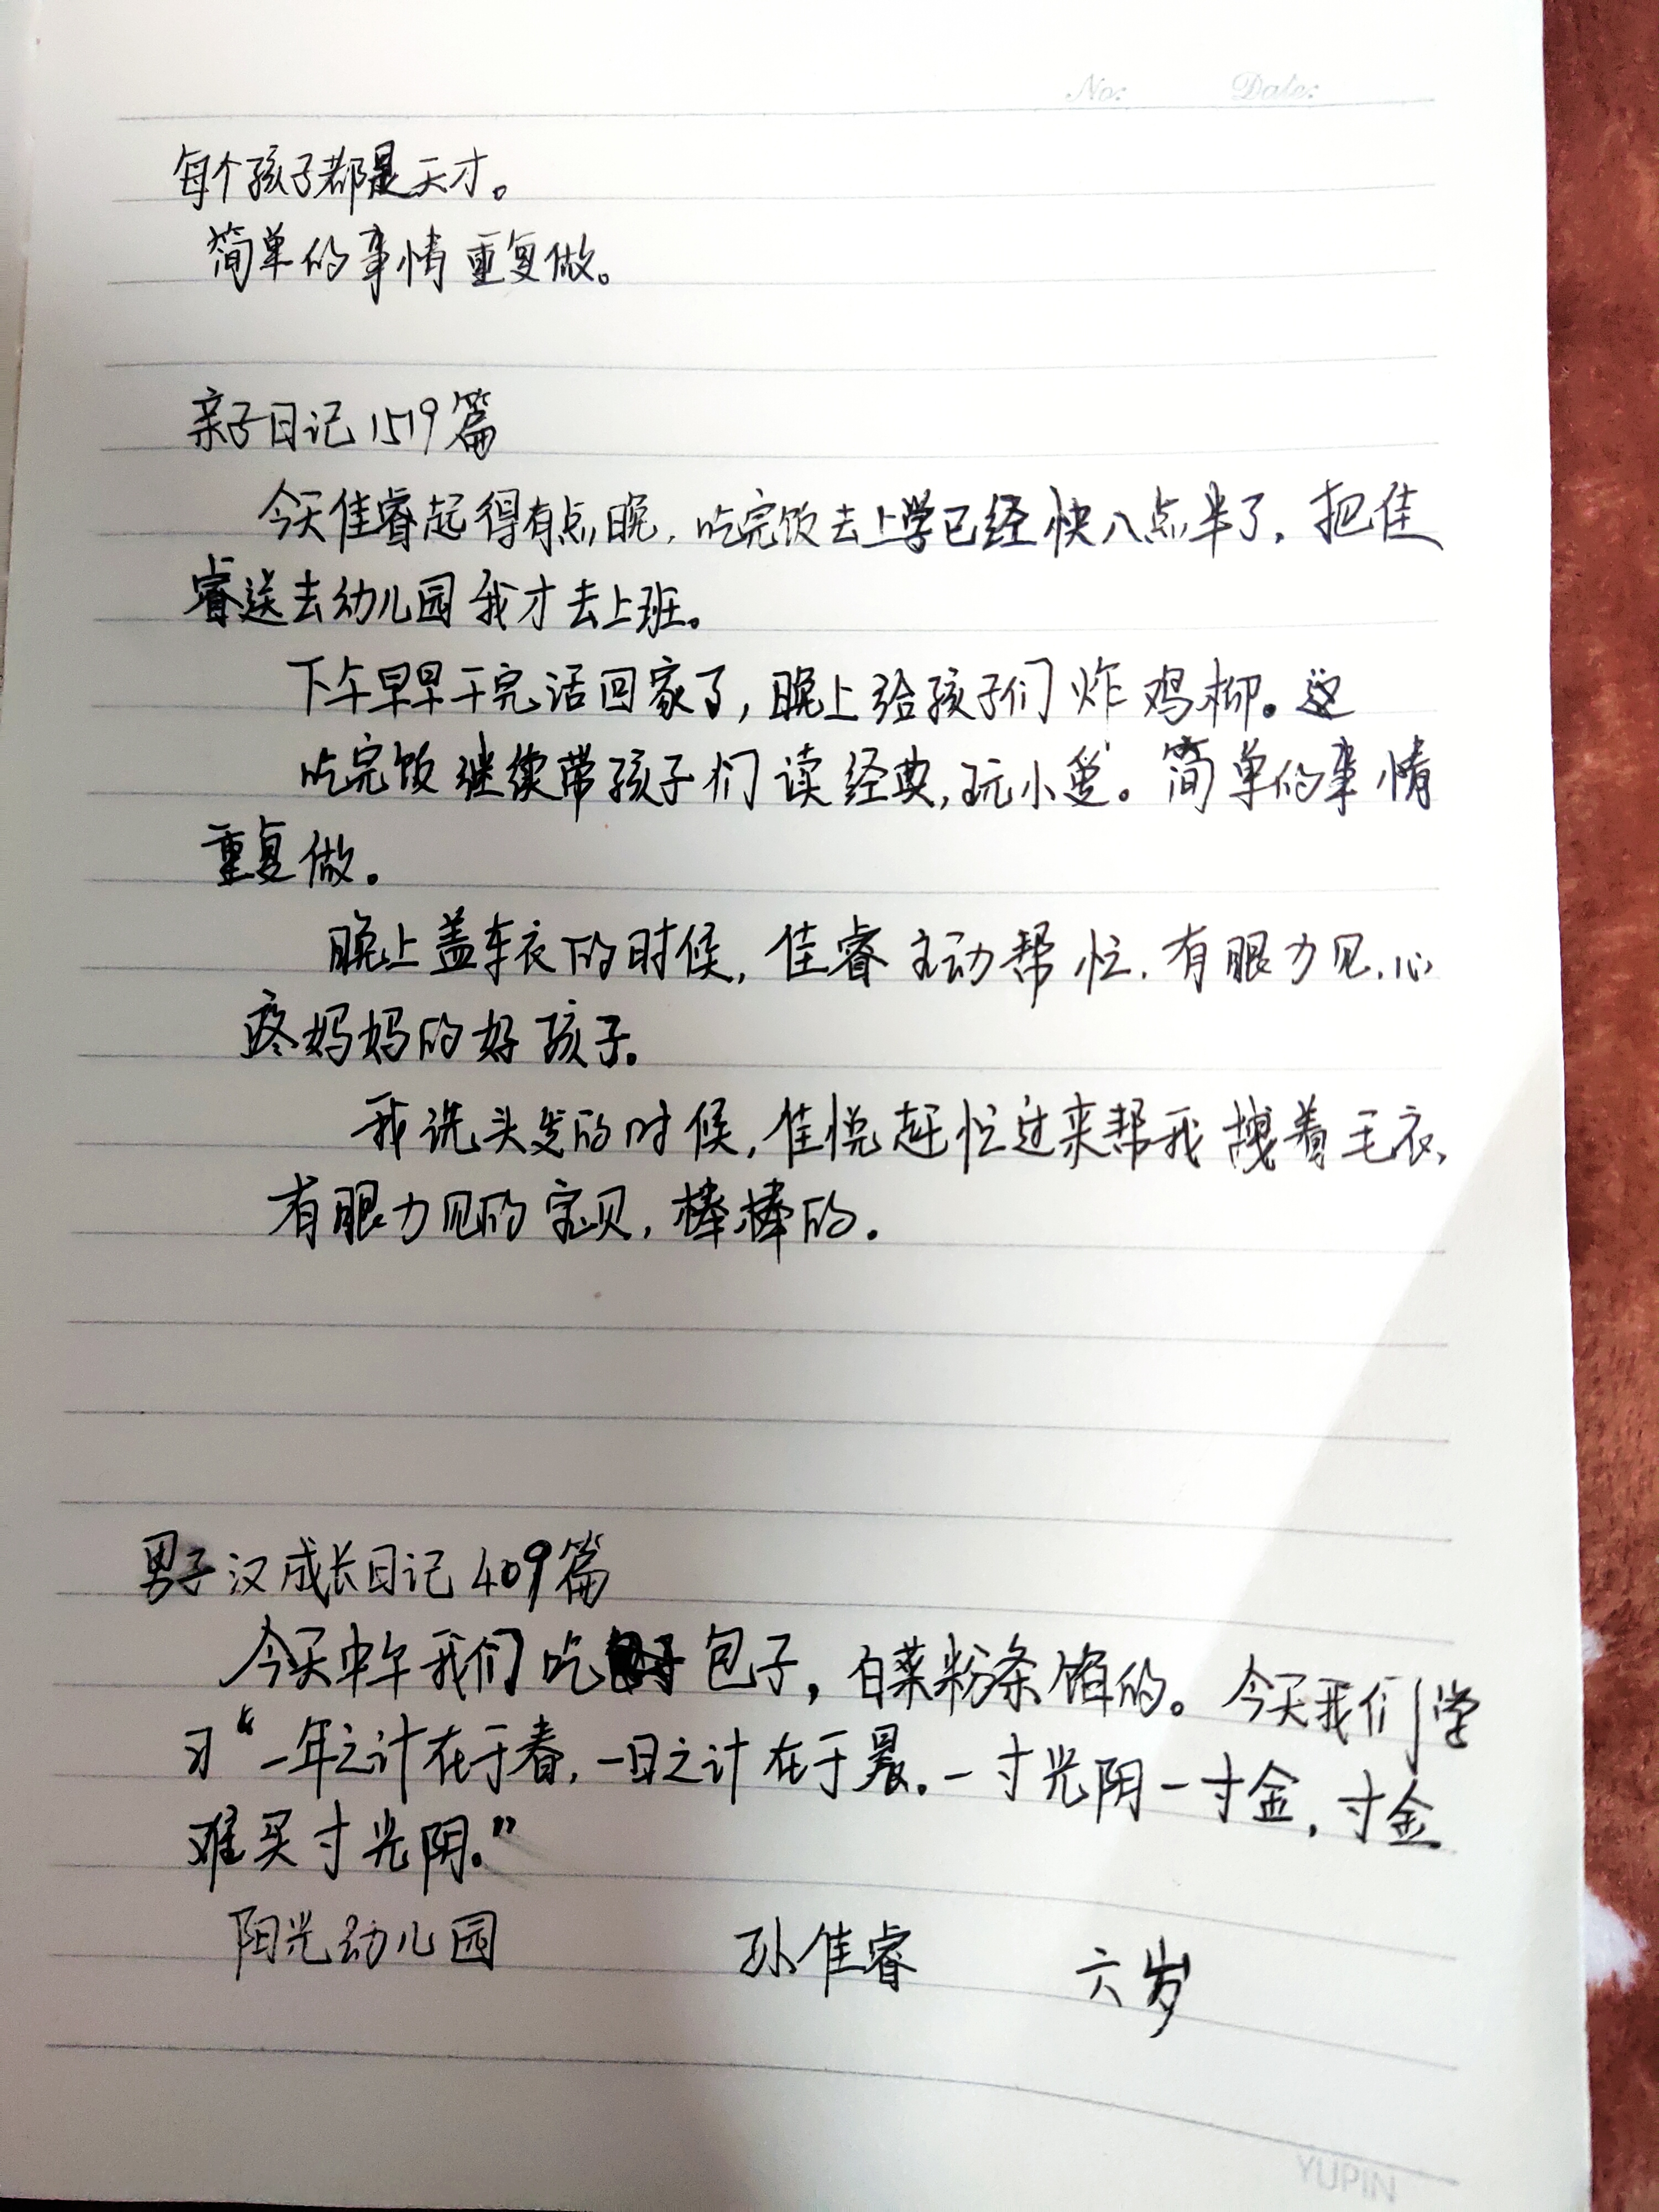 No: Date:
每个孩子都是天才。
简单的事情重复做。
亲子日记1519篇
今天佳睿起得有点晚,吃完饭去上学已经快八点半了,把佳
睿送去幼儿园我才去上班。
下午早早干完活回家了,晚上给孩子们炸鸡柳。
吃完饭继续带孩子们读经典,玩小爱。简单的事情
重复做。
晚上盖车衣的时候,佳睿主动帮忙,有眼力见,心
疼妈妈的好孩子。
我洗头发的时候,佳悦赶忙过来帮我拽着毛衣,
有眼力见的宝贝,棒棒的。
男子汉成长日记409篇
今天中午我们吃包子,白菜粉条馅的。今天我们学
习“一年之计在于春,一日之计在于晨。一寸光阴一寸金,寸金
难买寸光阴。”
阳光幼儿园 孙佳睿 六岁
YUPIN